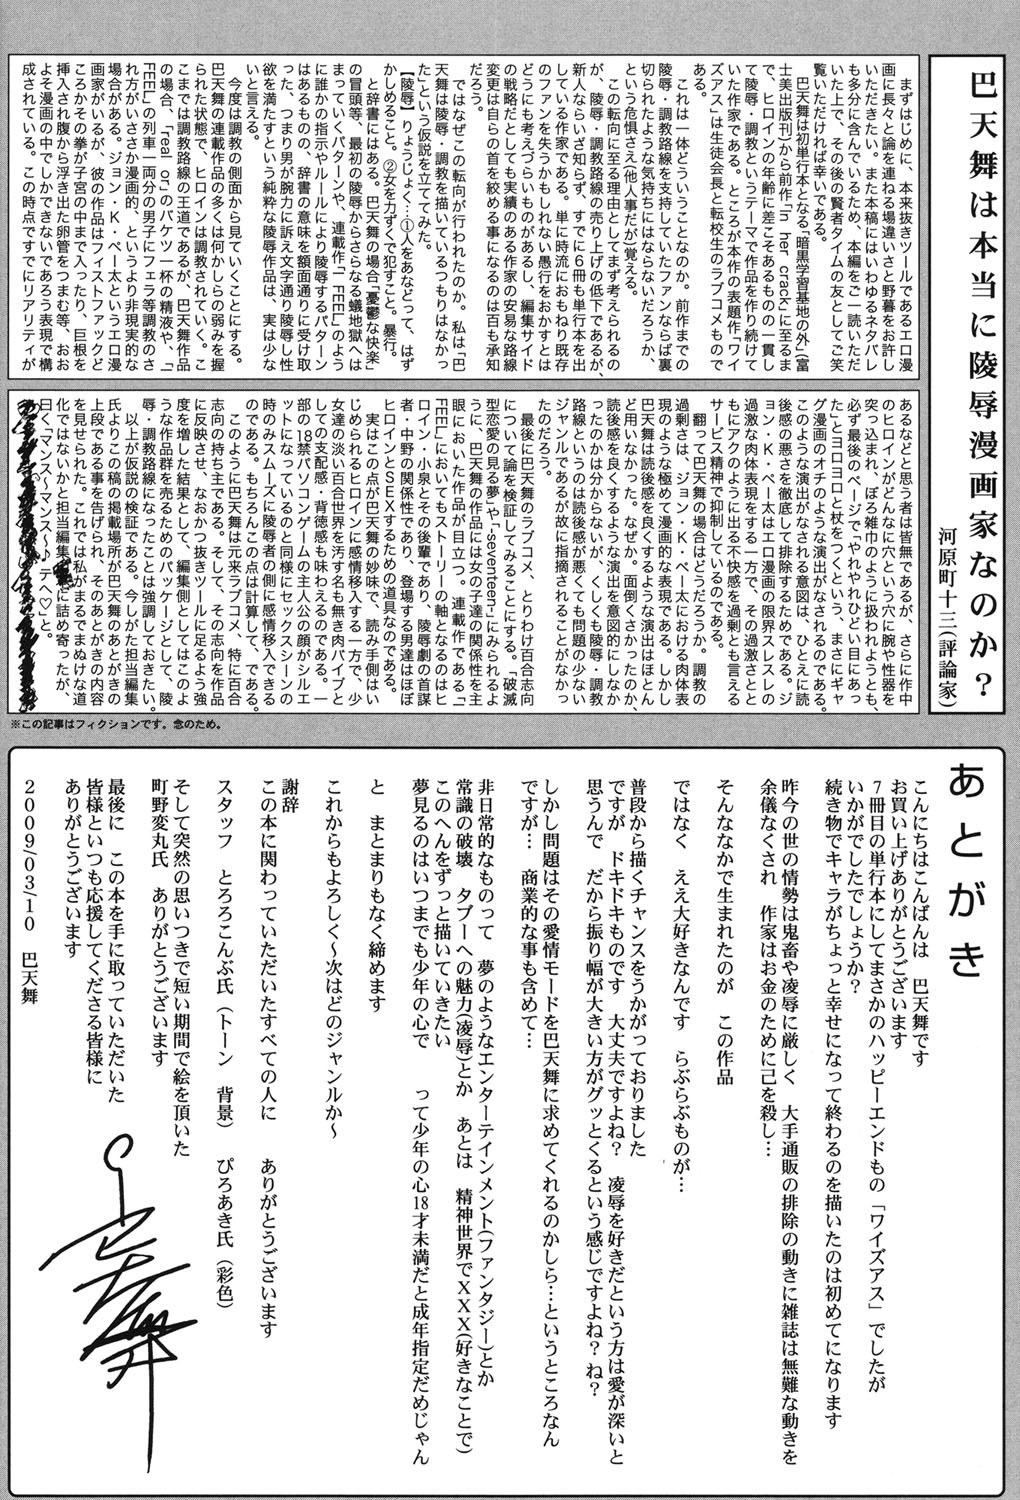 巴天舞は本当に陵辱漫画家なのか？
河原町十三(評論家)
まずはじめに、本来抜きツールであるエロ漫
画に長々と論を連ねる場違いさと野暮をお許し
いただきたい。また本稿にはいわゆるネタバレ
も多分に含んでいるため、本編をご一読いただ
いた上で、その後の賢者タイムの友としてご笑
覧いただければ幸いである。
巴天舞は初単行本となる「暗黒学習基地の外」(富
士美出版刊)から前作「In her crack」に至るま
で、ヒロインの年齢に差こそあるものの一貫し
て陵辱・調教というテーマで作品を作り続けて
いた作家である。ところが本作の表題作「ワイ
ズアス」は生徒会長と転校生のラブコメもので
ある。
これは一体どういうことなのか。前作までの
陵辱・調教路線を支持していたファンならば裏
切られたような気持ちにはならないだろうか、
という危惧さえ(他人事だが)覚える。
この転向に至る理由としてまず考えられるの
が、陵辱・調教路線の売り上げの低下であるが、
新人ならいざ知らず、すでに6冊も単行本を出
している作家である。単に時流におもねり既存
のファンを失うかもしれない愚行をおかすとは
どうにも考えづらいものがあるし、編集サイド
の戦略だとしても実績のある作家の安易な路線
変更は自らの首を絞める事になるのは百も承知
だろう。
ではなぜこの転向が行われたのか。私は「巴
天舞は陵辱・調教を描いているつもりはなかっ
た」という仮説を立ててみた。
【陵辱】りょうじょく…①人をあなどって、はず
かしめること。②女を力ずくで犯すこと。暴行。
と辞書にはある。巴天舞の場合「憂鬱な快楽」
の冒頭等、最初の陵辱からさらなる蟻地獄へは
まっていくパターンや、連載作「FEEL」のよう
に誰かの指示やルールにより陵辱するパターン
はあるものの、辞書の意味を額面通りに受け取
った、つまり男が腕力に訴え文字通り陵辱し性
欲を満たすという純粋な陵辱作品は、実は少な
いと言える。
今度は調教の側面から見ていくことにする。
巴天舞の連載作品の多くは何かしらの弱みを握
られた状態で、ヒロインは調教されていく。こ
こまでは調教路線の王道であるが、巴天舞作品
の場合、「real or」のバケツ一杯の精液や、「
FEEL」の列車一両分の男子にフェラ等調教のさ
れ方がいささか漫画的、というより非現実的な
場合がある。ジョン・K・ペー太というエロ漫
画家がいるが、彼の作品はフィストファックど
ころかその拳が子宮の中まで入ったり、巨根を
挿入され腹から浮き出た卵管をつまむ等、おお
よそ漫画の中でしかできないであろう表現で構
成されている。この時点ですでにリアリティが
あるなどと思う者は皆無であるが、さらに作中
のヒロインがどんなに穴という穴に腕や性器を
突っ込まれ、ぼろ雑巾のように扱われようとも、
必ず最後のページで「やれやれひどい目にあっ
た」とヨロヨロと杖をつくという、まさにギャ
グ漫画のオチのような演出がなされるのである。
このような演出がなされる意図は、ひとえに読
後感の悪さを徹底して排除するためである。ジ
ョン・K・ペー太はエロ漫画の限界スレスレの
過激な肉体表現をする一方で、その過激さとと
もにアクのように出る不快感を過剰とも言える
サービス精神で抑制しているのである。
翻って巴天舞の場合はどうだろうか。調教の
過剰さは、ジョン・K・ペー太における肉体表
現のような極めて漫画的な表現である。しかし
巴天舞は読後感を良くするような演出はほとん
ど用いなかった。なぜか。面倒くさかったのか、
読後感を良くするような演出を意図的にしなか
ったのかは分からないが、くしくも陵辱・調教
路線というのは読後感が悪くても問題の少ない
ジャンルであるが故に指摘されることがなかっ
たのだろう。
最後に巴天舞のラブコメ、とりわけ百合志向
について論を検証してみることにする。「破滅
型恋愛の見る夢」や「-seventeen-」にみられるよ
うに、巴天舞の作品には女の子達の関係性を主
眼においた作品が目立つ。連載作である「
FEEL」においてもストーリーの軸となるのはヒ
ロイン・小泉とその後輩であり、陵辱劇の首謀
者・中野の関係性であり、登場する男達はほぼ
ヒロインとSEXするための道具なのである。
実はこの点が巴天舞の妙味で、読み手側はい
じめられるヒロインに感情移入する一方で、少
女達の淡い百合世界を汚す名も無き肉パイプと
しての支配感・背徳感も味わえるのである。一
部の18禁パソコンゲームの主人公の顔がシルエ
ットになっているのと同様にセックスシーンの
時のみスムーズに陵辱者の側に感情移入できる
のである。もちろんこの点は計算して、である。
このように巴天舞は元来ラブコメ、特に百合
志向の持ち主である。そして、その志向を作品
に反映させ、なおかつ抜きツールに足るよう強
度を増した結果として、編集側としてはこのよ
うな作品群を売るためのパッケージとして、陵
辱・調教路線になったことは強調しておきたい。
以上が仮説の検証である。今しがた担当編集
氏よりこの稿の掲載場所が巴天舞のあとがきの
上段である事を告げられ、そのあとがきの内容
を見せられた。これでは私がまるでまぬけな道
化ではないかと担当編集に詰め寄ったが、
曰く「マンス～マンス～♪テヘ♡」と。
※この記事はフィクションです。念のため。
あとがき
こんにちはこんばんは　巴天舞です
お買い上げありがとうございます
7冊目の単行本にしてまさかのハッピーエンドもの「ワイズアス」でしたが
いかがでしたでしょうか？
続き物でキャラがちょっと幸せになって終わるのを描いたのは初めてになります
昨今の世の情勢は鬼畜や凌辱に厳しく　大手通販の排除の動きに雑誌は無難な動きを
余儀なくされ　作家はお金のために己を殺し…
そんななかで生まれたのが　この作品
ではなく　ええ大好きなんです　らぶらぶものが…
普段から描くチャンスをうかがっておりました
ですが　ドキドキものです　大丈夫ですよね？　凌辱を好きだという方は愛が深いと
思うんで　だから振り幅が大きい方がグッとくるという感じですよね？ね？
しかし問題はその愛情モードを巴天舞に求めてくれるのかしら…というところなん
ですが…　商業的な事も含めて…
非日常的なものって　夢のようなエンターテインメント(ファンタジー)とか
常識の破壊　タブーへの魅力(凌辱)とか　あとは　精神世界でXXX(好きなことで)
このへんをずっと描いていきたい
夢見るのはいつまでも少年の心で　　って少年の心18才未満だと成年指定だめじゃん
と　まとまりもなく締めます
これからもよろしく～次はどのジャンルか～
謝辞
この本に関わっていただいたすべての人に　　ありがとうございます
スタッフ　とろろこんぶ氏（トーン　背景）　ぴろあき氏（彩色）
そして突然の思いつきで短い期間で絵を頂いた
町野変丸氏　ありがとうございます
最後に　この本を手に取っていただいた
皆様といつも応援してくださる皆様に
ありがとうございます
2009/03/10　巴天舞